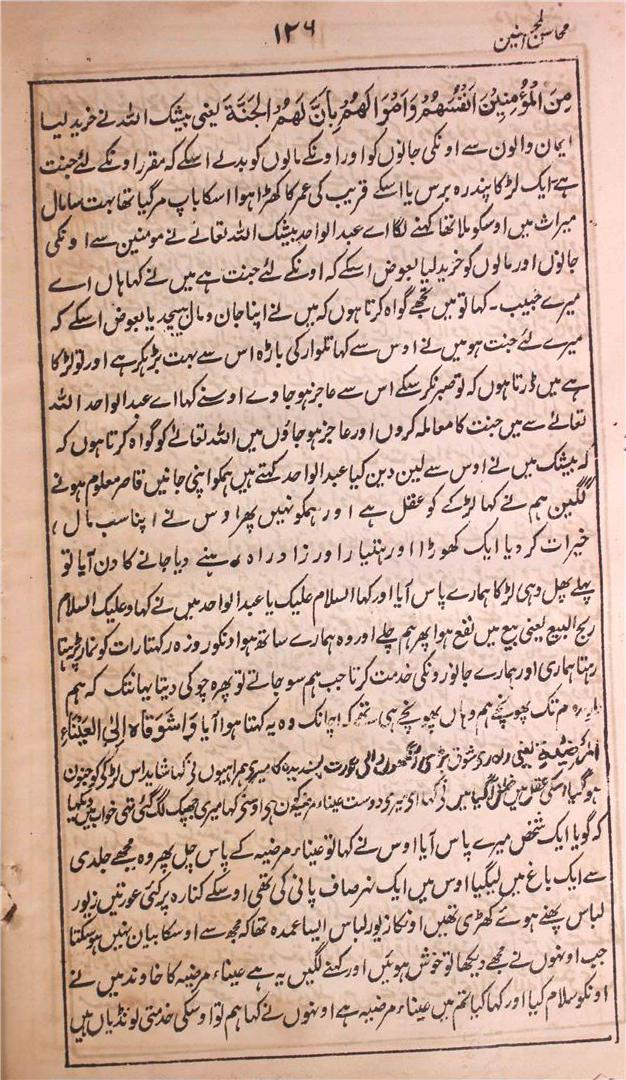 محاسن المحبین
۱۲۶
مِنَ الْمُؤْمِنِیْنَ اَنْفُسَهُمْ وَاَمْوَالَهُمْ بِاَنَّ لَهُمُ الْجَنَّةَ یعنی بیشک اللہ نے خرید لیا
ایمان والون سے اونکی جانوں کو اور اونکے مالوں کو بدلے اسکے کہ مقرر اونکے لئے جنت
ہے ایک لڑکا پندرہ برس یا اسکے قریب کی عمر کا کھڑا ہوا اسکا باپ مر گیا تھا بہت سا مال
میراث میں اوسکو ملا تھا کہنے لگا اے عبد الواحد بیشک اللہ تعالے نے مومنین سے اونکی
جانوں اور مالوں کو خرید لیا بعوض اسکے کہ اونکے لئے جنت ہے میں نے کہا ہاں اے
میرے حبیب۔ کہا تو میں تجھے گواہ کرتا ہوں کہ میں نے اپنا جان و مال بیچدیا بعوض اسکے کہ
میرے لئے جنت ہو میں نے اوس سے کہا تلوار کی باڑہ اس سے بہت بڑہکر ہے اور تو لڑکا
ہے میں ڈرتا ہوں کہ تو صبر نکر سکے اس سے عاجز ہو جاوے اوسنے کہا اے عبد الواحد اللہ
تعالے سے میں جنت کا معاملہ کروں اور عاجز ہو جاؤں میں اللہ تعالے کو گواہ کرتا ہوں کہ
کہ بیشک میں نے اوس سے لین دین کیا عبد الواحد کہتے ہیں ہمکو اپنی جانیں قاصر معلوم ہونے
لگین ہم نے کہا لڑکے کو عقل ہے اور ہمکو نہیں پھر اوس نے اپنا سب مال
خیرات کر دیا ایک گھوڑا اور ہتیار اور زاد راہ رہنے دیا جانے کا دن آیا تو
پہلے پہل وہی لڑکا ہمارے پاس آیا اور کہا السلام علیک یا عبد الواحد میں نے کہا وعلیک السلام
ربح البیع یعنی بیع میں نفع ہوا پھر ہم چلے اور وہ ہمارے ساتھ ہوا دنکو روزہ رکھتا رات کو نماز پڑہتا
رہتا ہماری اور ہمارے جانورونکی خدمت کرتا جب ہم سو جاتے تو پہرہ چوکی دیتا یہانتک کہ ہم
تک پہونچے ہم وہاں پہونچے ہی تھے کہ اچانک وہ یہ کہتا ہوا آیا وَاشَوْقَاهُ اِلَی الْعَیْنَاءِ
الْمَرْضِیَّةِ یعنی شوق بڑی آنکھوں والی عورت پسندیدہ کا میرے ہمراہیوں نے کہا شاید اس لڑکے کو جنون
ہو گیا اوسکی عقل میں خلل آگیا میں نے کہا اے میری دوست عیناء مرضیہ کون ہے اوسنے کہا میری جھپک لگ گئی تھی خواب میں دیکھا
کہ گویا ایک شخص میرے پاس آیا اوس نے کہا تو عیناء مرضیہ کے پاس چل پھر وہ مجھے جلدی
سے ایک باغ میں لیگیا اوس میں ایک نہر صاف پانی کی تھی اوسکے کنارہ پر کئی عورتیں زیور
لباس پہنے ہوئے کھڑی تھیں اونکا زیور لباس ایسا عمدہ تھا کہ مجھ سے اوسکا بیان نہیں ہو سکتا
جب اونہوں نے مجھے دیکھا تو خوش ہوئیں اور کہنے لگیں یہ ہے عیناء مرضیہ کا خاوند میں نے
اونکو سلام کیا اور کہا کیا تم میں عیناء مرضیہ ہے اونہوں نے کہا ہم تو اوسکی خدمتی لونڈیاں ہیں